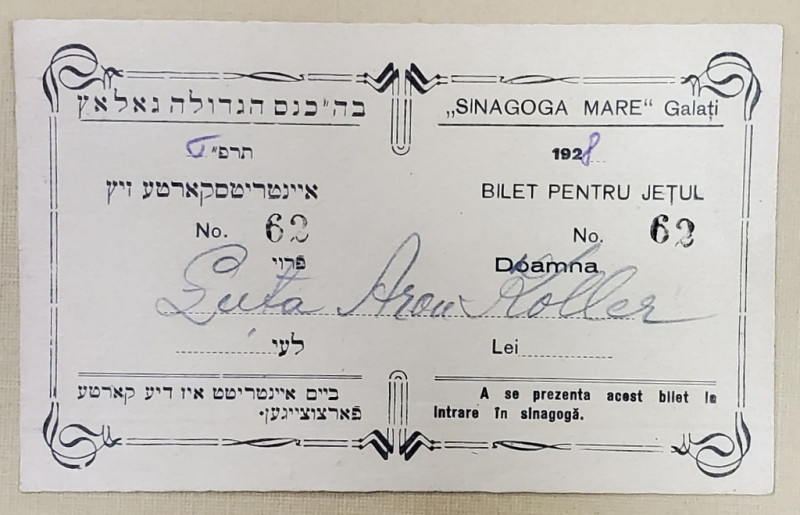 בה״כנס הגדולה גאלאץ
תרפ״ט
איינטריטסקארטע זיץ
No. 62
פרוי
לעי
ביים איינטריטט איז דיע קארטע
פארצוצייגען.
„SINAGOGA MARE“ Galați
1928
BILET PENTRU JEȚUL
No. 62
Doamna
Guta Aron Koller
Lei
A se prezenta acest bilet la
intrare în sinagogă.